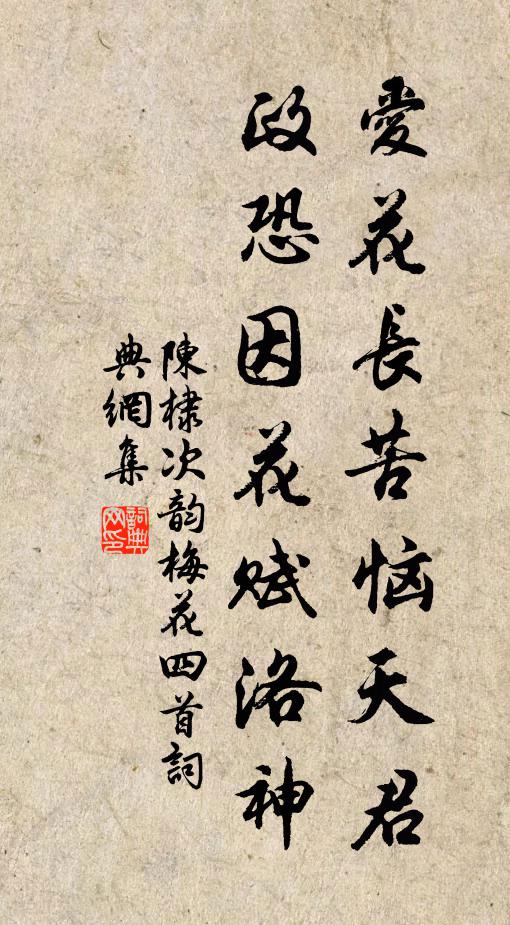 愛花長苦恼天君
政恐因花賦洛神
陳棣次韵梅花四首詞
典網集
詞典网印